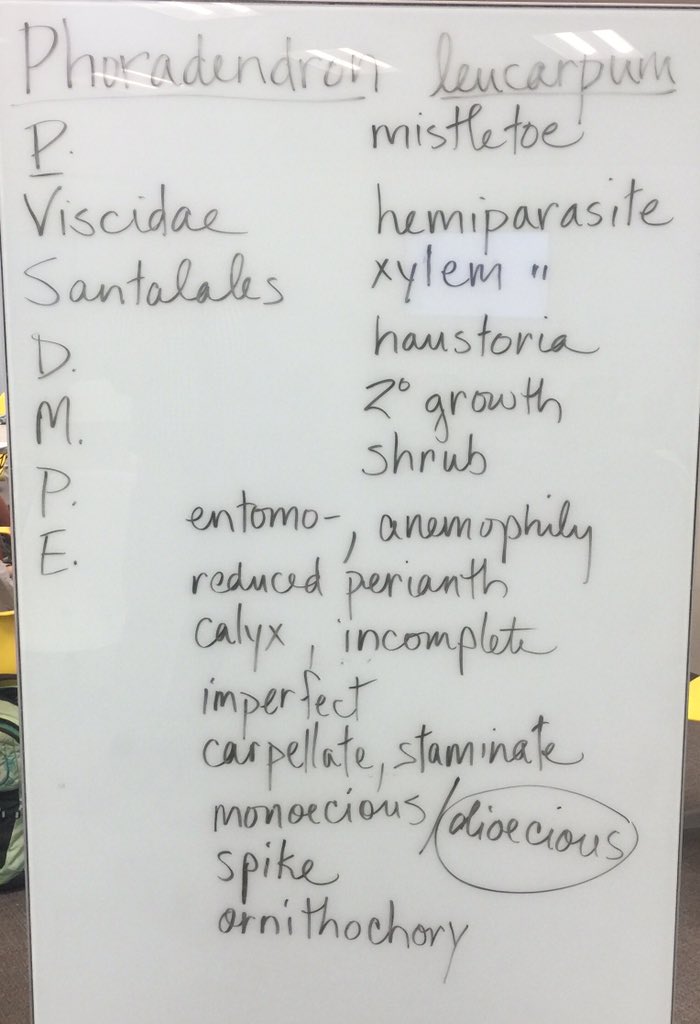 Phoradendron leucarpum
P. mistletoe
Viscidae hemiparasite
Santalales xylem "
D. haustoria
M. 2° growth
P. shrub
E. entomo-, anemophily
reduced perianth
calyx, incomplete
imperfect
carpellate, staminate
monoecious/dioecious
spike
ornithochory